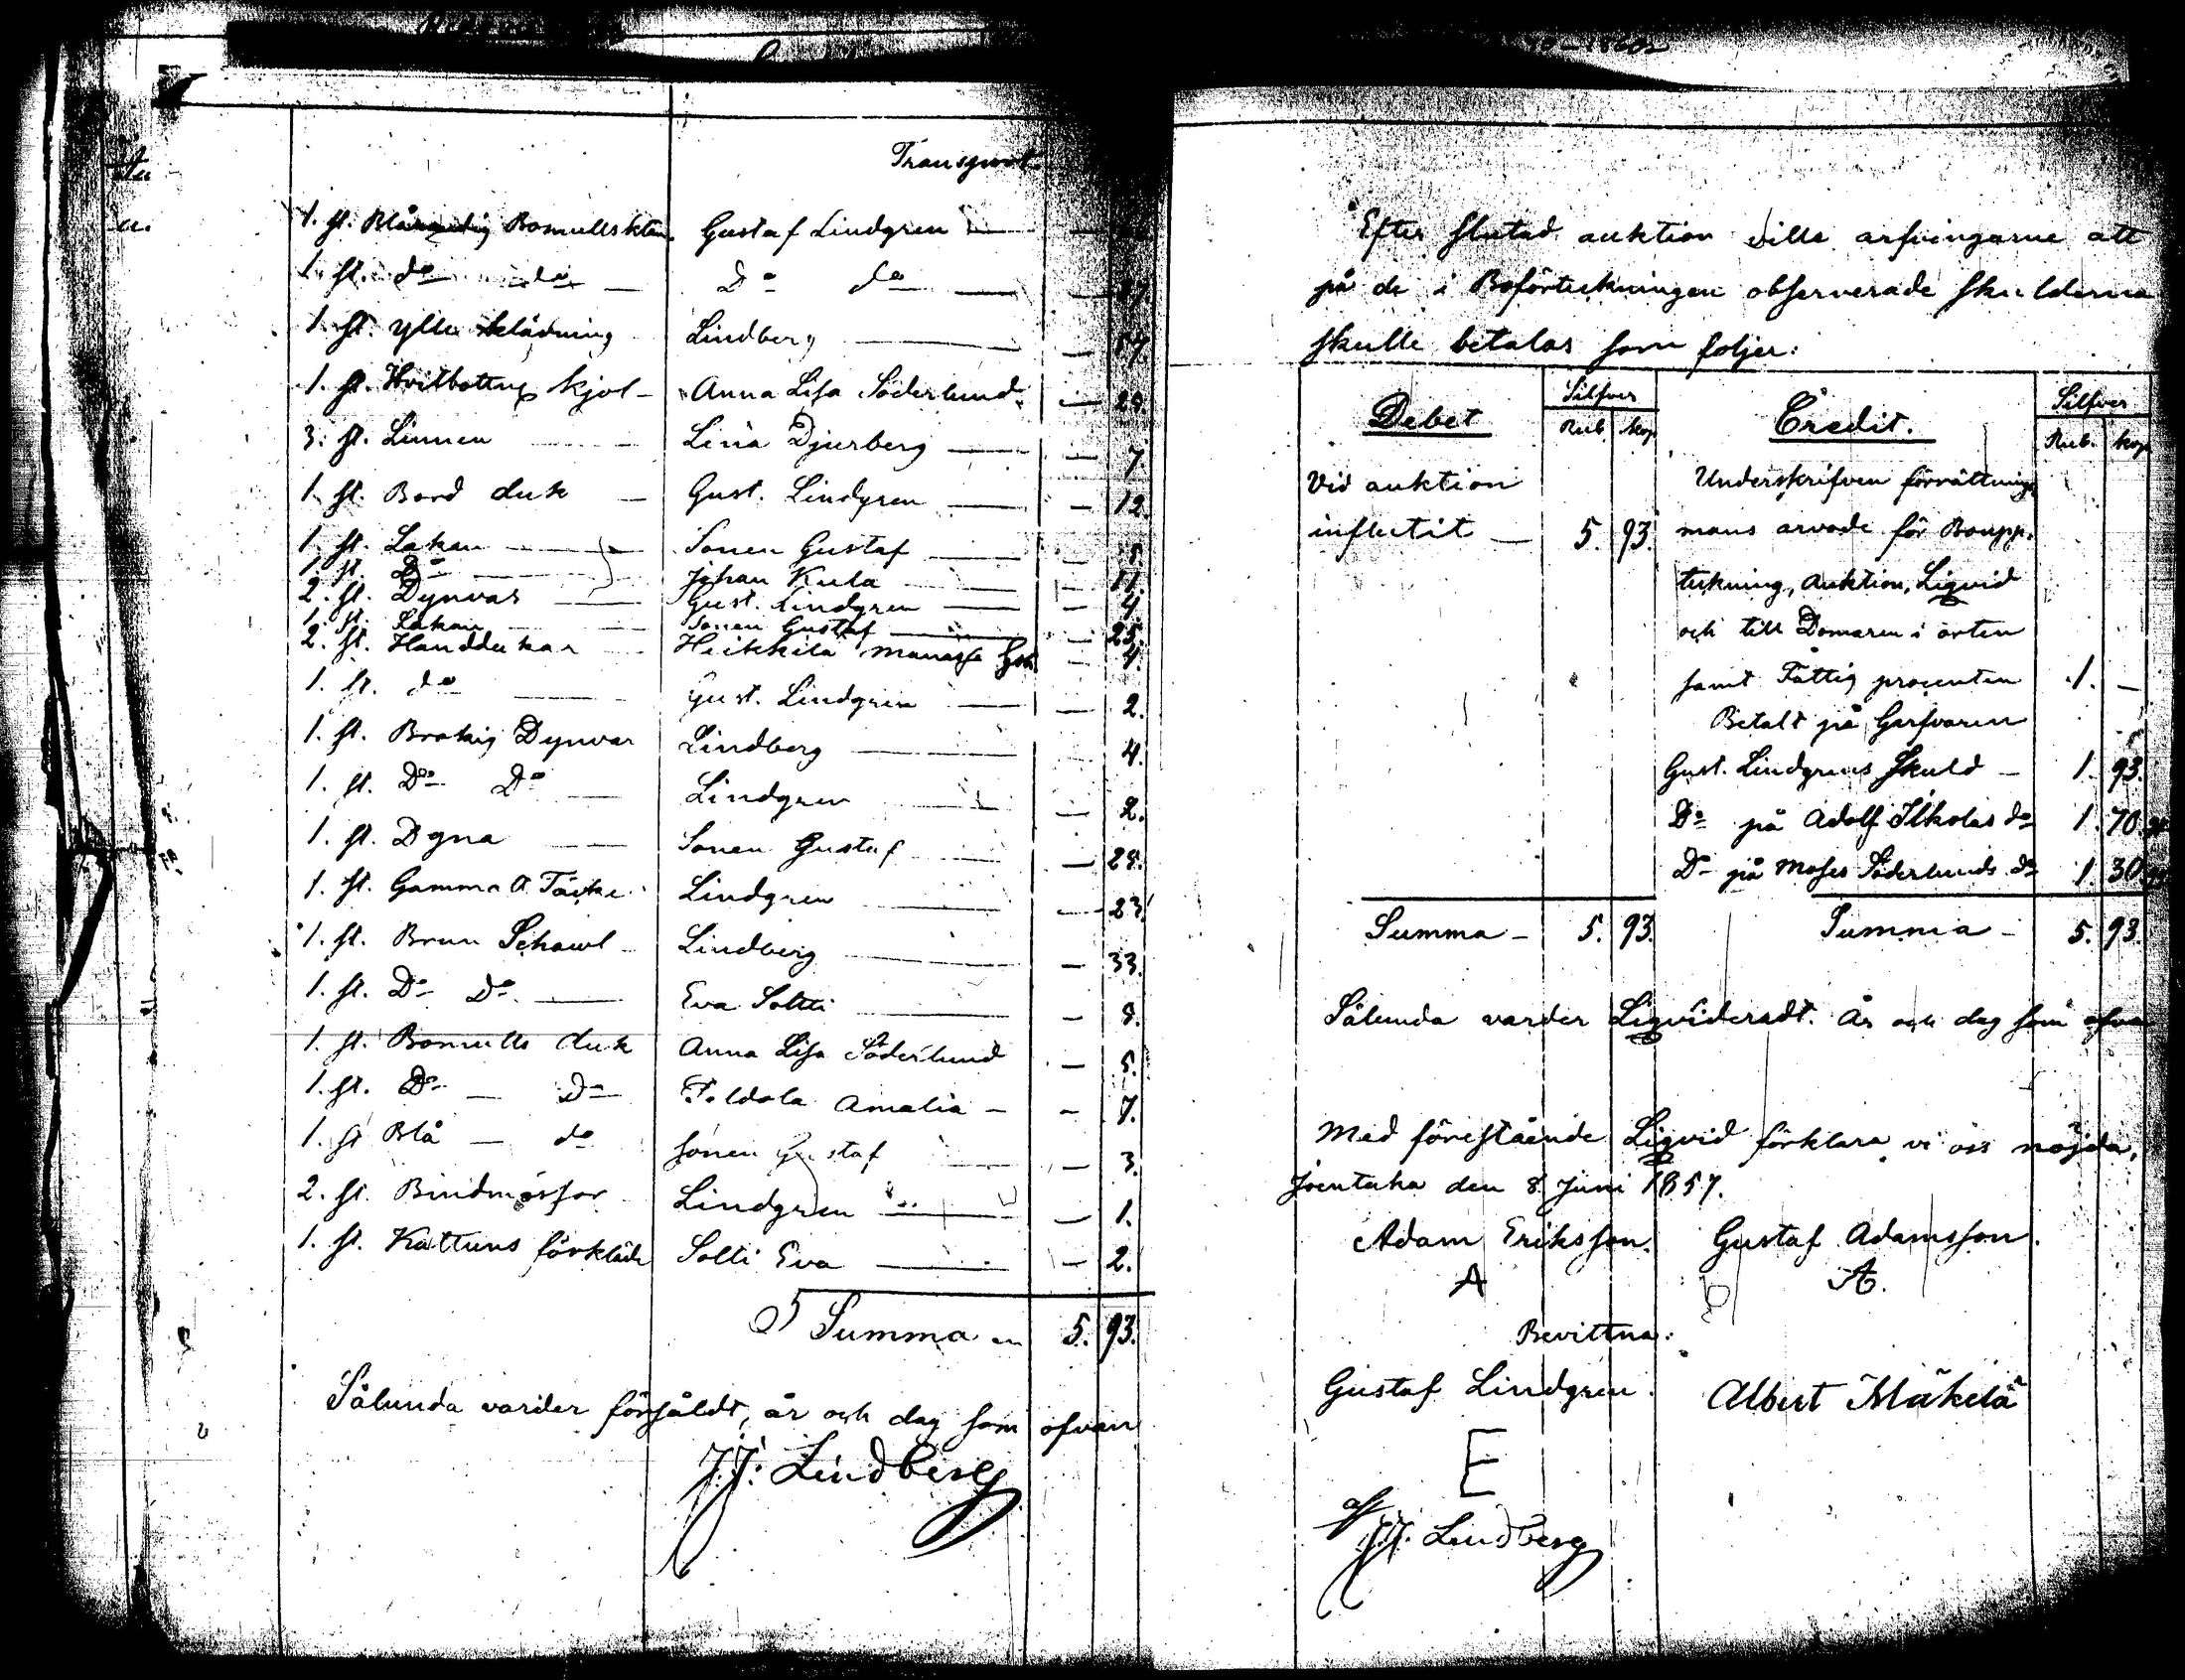 Transport
1. st. Blårandig Bomullsklän. Gustaf Lindgren — —
1. st. do do — Do do — —
1. st. ylle klädning Lindberg — — 57.
1. st. Hvitbottng kjol — Anna Lisa Söderlund. — 25.
3. st. Linnen — Lina Djurberg — — 7.
1. st. Bord duk — Gust. Lindgren — — 12.
1. st. Lakan — Sonen Gustaf — — 5.
1. st. Do — Johan Kula — — 11.
2. st. Dynvar — Gust. Lindgren — — 4.
1. st. Lakan — Sonen Gustaf — — 25.
2. st. Handdukar — Heikkilä Manasse — 4.
1. st. do — Gust. Lindgren — — 2.
1. st. Brokig Dynvar Lindberg — — 4.
1. st. Do Do — Lindgren — — 2.
1. st. Dyna — Sonen Gustaf — — 28.
1. st. Gamma A. Täcke Lindgren — — 23.
1. st. Brun Schawl — Lindberg — — 33.
1. st. Do Do — Eva Soltti — — 8.
1. st. Bomulls duk Anna Lisa Söderlund — 5.
1. st. Do — Do Peldola Amalia — — 7.
1. st Blå — do Sonen Gustaf — — 3.
2. st. Bindmössor Lindgren — — 1.
1. st. Kattuns förkläde Solti Eva — — 2.
Summa 5. 93.
Sålunda varder försåldt, år och dag som ofvan
J.J. Lindberg
Efter slutad auktion ville arfvingarne att
på de i Boförteckningen observerade skulderna
skulle betalas som foljer:
Debet Silfver Credit. Silfver
Rub. kop Rub. kop
Vid auktion Underskrifven förrättnings
influtit — 5. 93. mans arvode för Boupp.
teckning, Auktion, Liqvid
och till Domaren i orten
samt Fattig procenten 1. —
Betalt på Garfvaren
Gust. Lindgrens Skuld — 1. 93.
Do på Adolf Ilkolas do 1. 70.
Do på Moses Söderlunds do 1. 30.
Summa — 5. 93. Summa — 5. 93.
Sålunda varder Liqvideradt. År och dag som ofvan
Med förestående Liqvid förklara vi oss nöjda,
Joentaka den 8. Juni 1857.
Adam Eriksson. Gustaf Adamsson.
A A.
Bevittna:
Gustaf Lindgren. Albert Mäkelä
E
af J.J. Lindberg